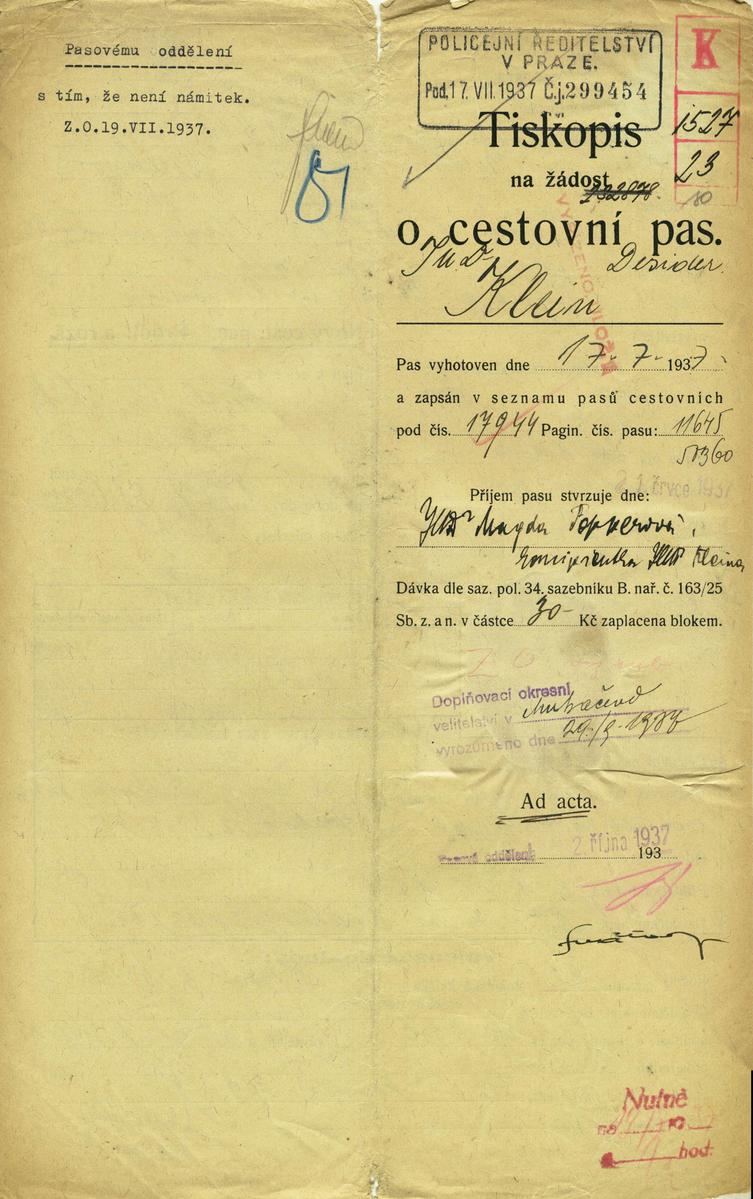 Pasovému oddělení
s tím, že není námitek.
Z.O.19.VII.1937.
POLICEJNÍ ŘEDITELSTVÍ
V PRAZE.
Pod. 17. VII. 1937 Č.j. 299454
K
1527
23
Tiskopis
na žádost
o cestovní pas.
JuDr Desider
Klein
Pas vyhotoven dne 17. 7. 1937
a zapsán v seznamu pasů cestovních
pod čís. 17944 Pagin. čís. pasu: 11645
50360
21. července 1937
Příjem pasu stvrzuje dne:
JUDr Magda Popperová,
koncipientka JUDr Kleina
Dávka dle saz. pol. 34. sazebníku B. nař. č. 163/25
Sb. z. a n. v částce 30- Kč zaplacena blokem.
Doplňovací okresní
velitelství v Mukačevo
vyrozuměno dne 29/9 1937
Ad acta.
Pasové oddělení 2. října 1937
193
Nutně
na
hod.